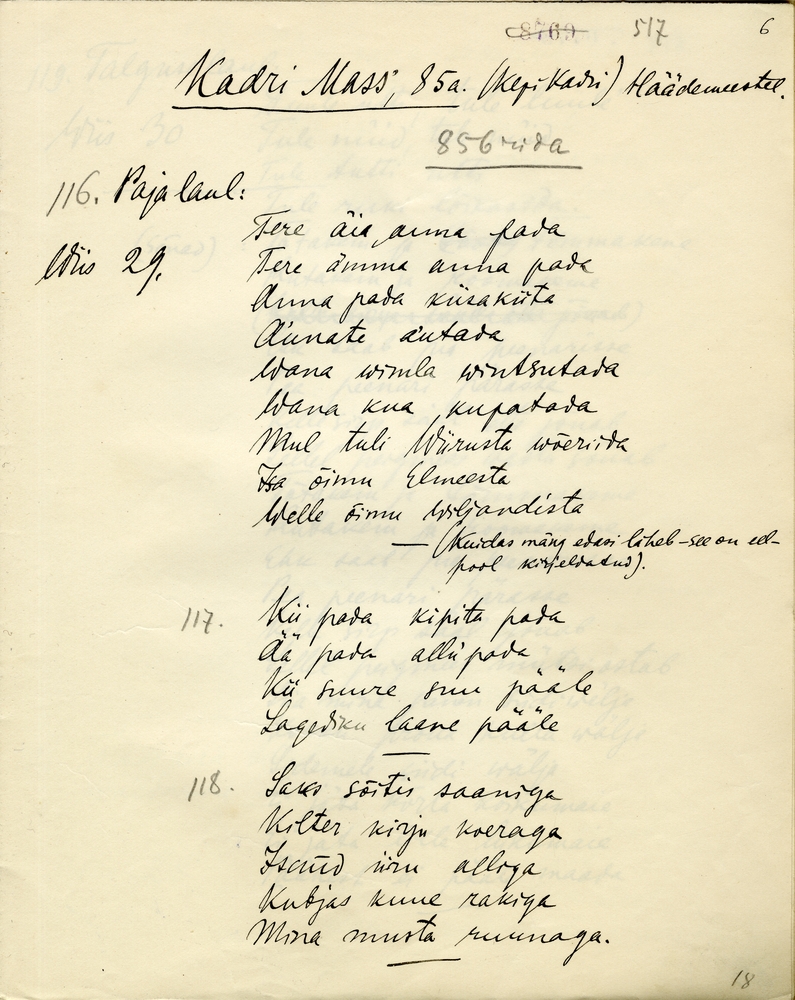 8769 517 6
Kadri Mass, 85a. (Kepi Kadri) Häädemeestel.
856 rida
116. Pajalaul:
Tere äia anna pada
Wiis 29. Tere ämma anna pada
Anna pada kiisakiita
Ännate äutada
Wana wimla wintsutada
Wana kua kupatada
Mul tuli Wiirusta wõeriida
Isa õimu Elmeesta
Welle õimu Wiljandista
— (Kuidas mäng edasi läheb – see on eel-
pool kirjeldatud).
117. Kii pada kipita pada
Ää pada alli pada
Kii suure suu pääle
Lagediku laane pääle
118. Saks sõitis saaniga
Kilter kirju koeraga
Isand iiru alliga
Kubjas kuue rakiga
Mina musta ruunaga.
18